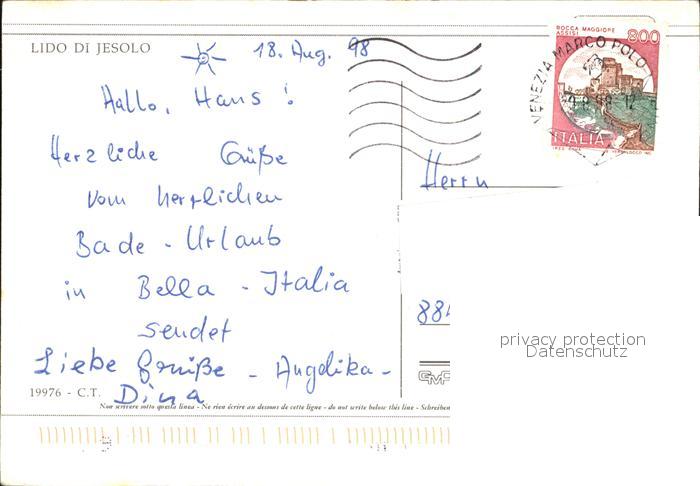 LIDO DI JESOLO
18. Aug. 98
Hallo, Hans!
Herzliche Grüße
vom herrlichen
Bade-Urlaub
in Bella-Italia
sendet
Liebe Grüße - Angelika-
Dina
19976 - C.T.
Non scrivere sotto questa linea - Ne rien écrire au dessous de cette ligne - do not write below this line - Schreiben
ROCCA MAGGIORE
ASSISI
800
ITALIA
VENEZIA MARCO POLO
Herrn
privacy protection
Datenschutz